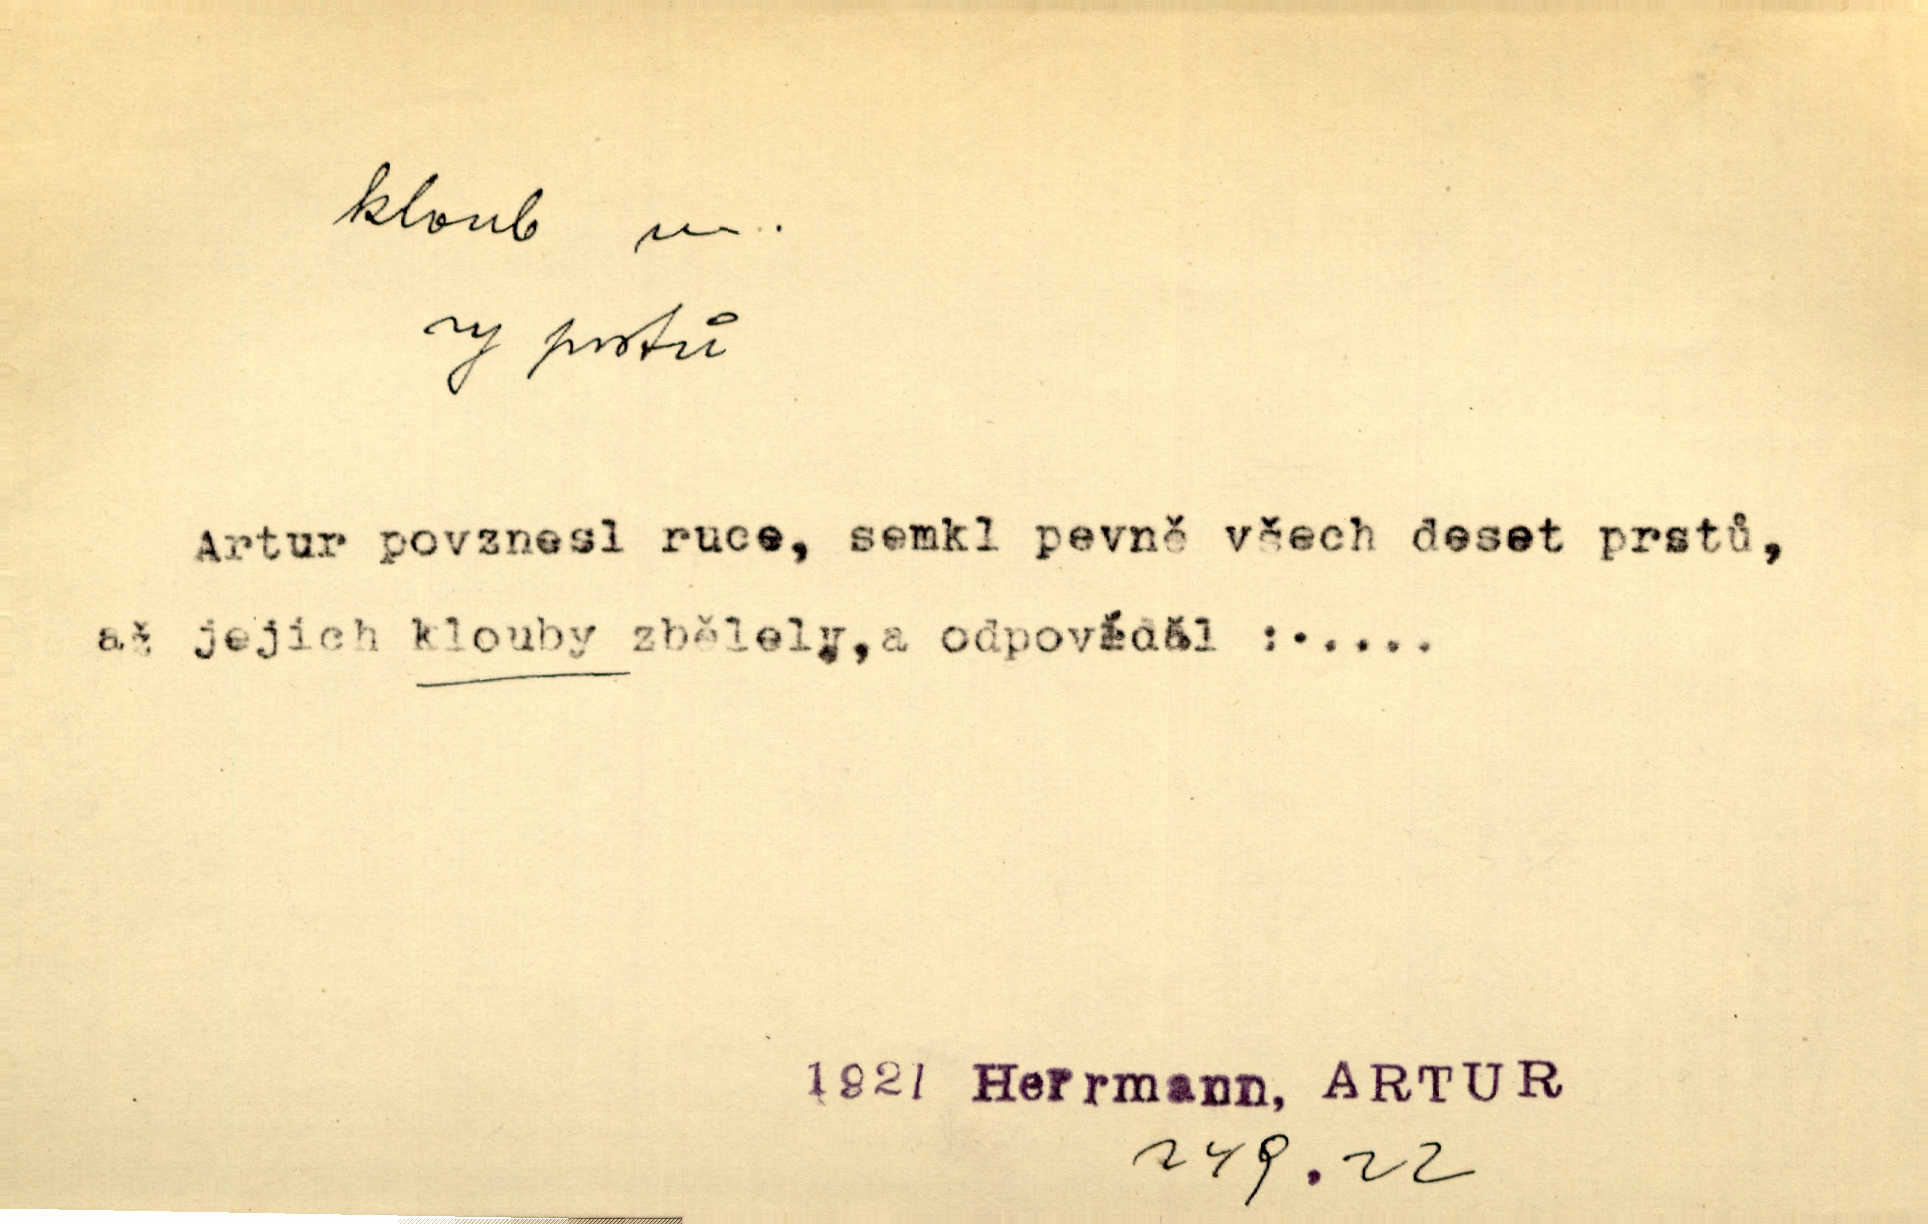 kloub m.
ry prstů
Artur povznesl ruce, semkl pevně všech deset prstů,
až jejich klouby zbělely,a odpověděl :.....
1921 Herrmann, ARTUR
249.22